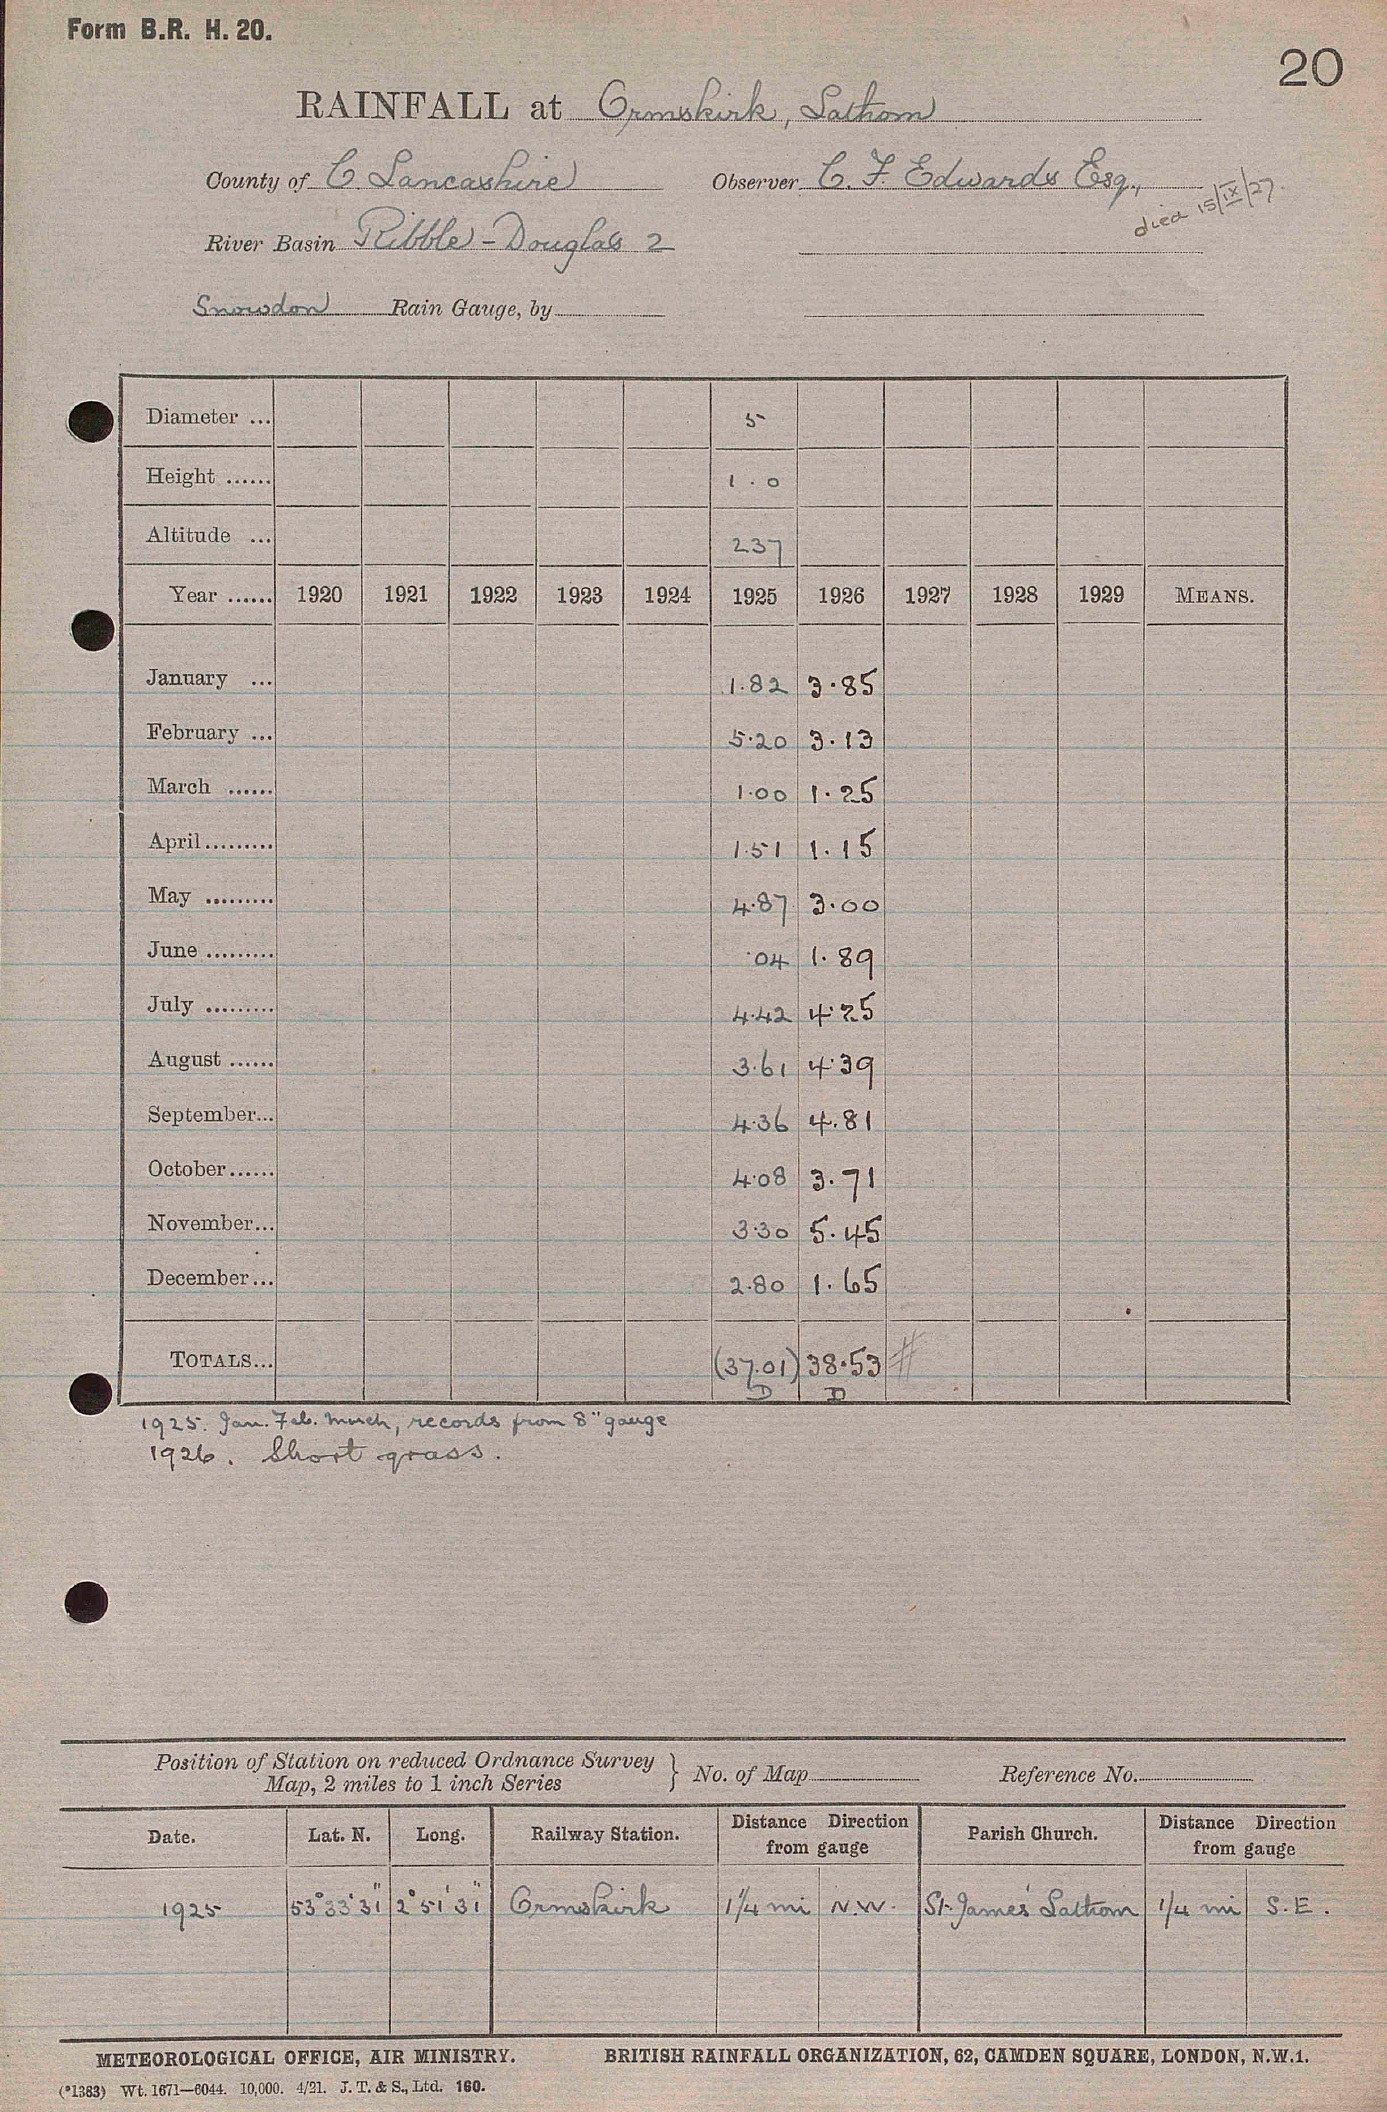 Form B.R. H. 20.
20
RAINFALL at Ormskirk, Lathom
County of C. Lancashire Observer C. F. Edwards Esq.,
died 15/IX/27.
River Basin Ribble - Douglas 2
Snowdon Rain Gauge, by
Diameter ... 5
Height ...... 1.0
Altitude ... 237
Year ...... 1920 1921 1922 1923 1924 1925 1926 1927 1928 1929 MEANS.
January ... 1.82 3.85
February ... 5.20 3.13
March ...... 1.00 1.25
April ......... 1.51 1.15
May ......... 4.87 3.00
June ......... .04 1.89
July ......... 4.42 4.25
August ...... 3.61 4.39
September... 4.36 4.81
October...... 4.08 3.71
November... 3.30 5.45
December... 2.80 1.65
TOTALS... (37.01) 38.53 #
D D
1925. Jan. Feb. March, records from 8" gauge
1926. Short grass.
Position of Station on reduced Ordnance Survey
Map, 2 miles to 1 inch Series } No. of Map Reference No.
Date. Lat. N. Long. Railway Station. Distance Direction from gauge Parish Church. Distance Direction from gauge
1925 53°33'31" 2°51'31" Ormskirk 1¼ mi N.W. St. James' Lathom ¼ mi S.E.
METEOROLOGICAL OFFICE, AIR MINISTRY. BRITISH RAINFALL ORGANIZATION, 62, CAMDEN SQUARE, LONDON, N.W.1.
(*1383) Wt. 1671—6044. 10,000. 4/21. J. T. & S., Ltd. 160.